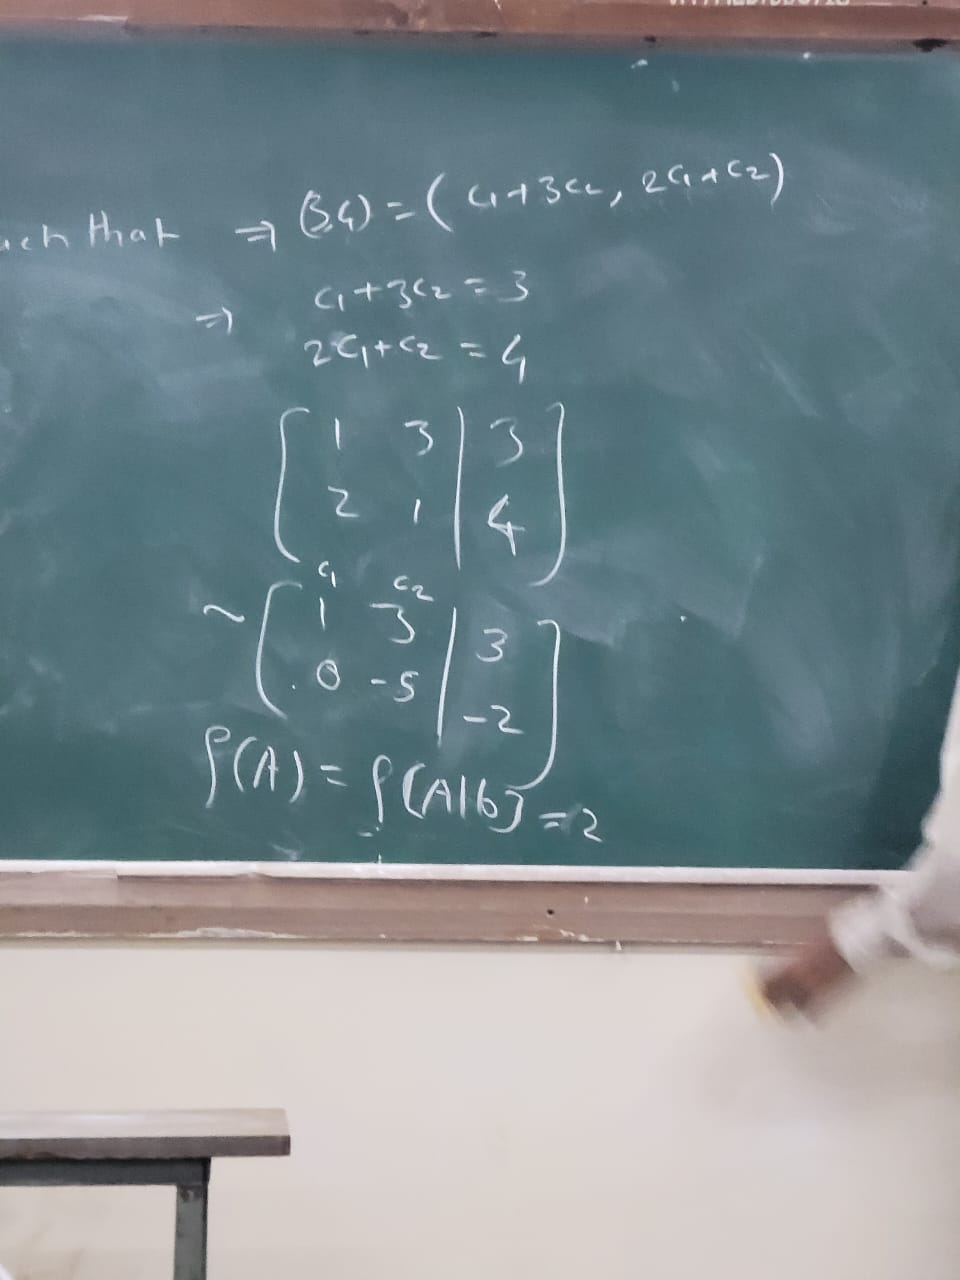 such that ⇒ (3,4) = (c₁+3c₂, 2c₁+c₂)
⇒ c₁+3c₂ = 3
2c₁+c₂ = 4
[ 1 3 | 3
2 1 | 4 ]
c₁ c₂
~ [ 1 3 | 3
0 -5 | -2 ]
ρ(A) = ρ[A|b] = 2